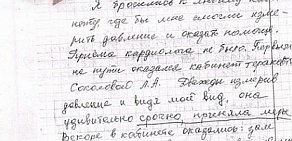 Я бросилась к любому каби-
нету где бы мне смогли изме-
рить давление и оказать помощь.
Приёма кардиолога не было. Первым
на пути оказался кабинет терапевта
Соколовой Л.А. Дважды измерив
давление и видя мой вид, она
удивительно срочно, приняла меры
Вскоре в кабинете оказались: зам